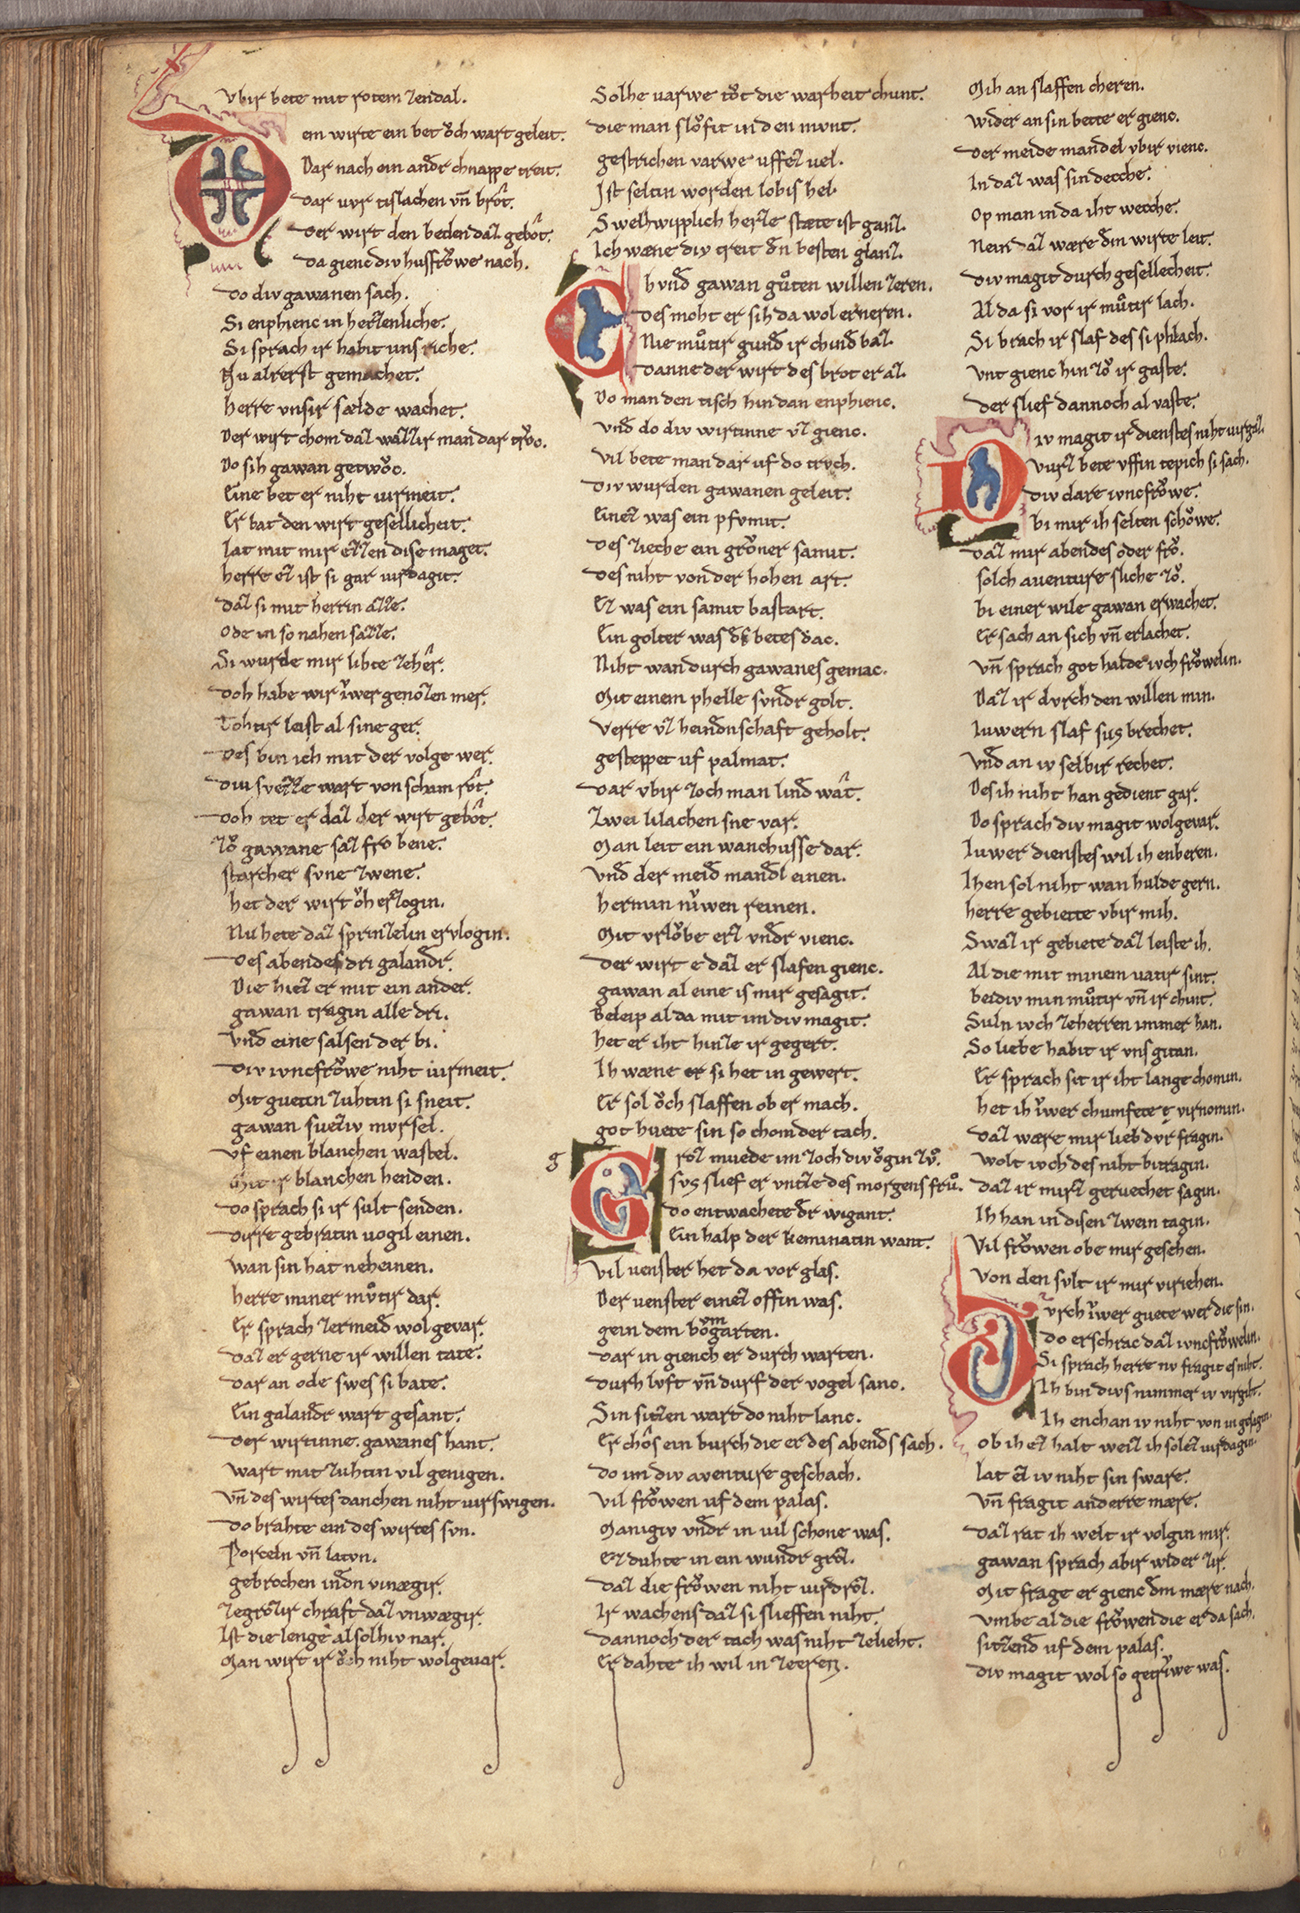 vbir bete mit rotem zendal.
Dem wirte ein bet oͮch wart geleit.
Dar nach ein andr chnappe treit.
Dar vvr tislachen vn̄ brôt.
Der wirt den beden daz gebôt.
Da gienc div husfroͮwe nach.
Do div gawanen sach.
Si enphienc in herzenliche.
Si sprach ir habit uns riche.
Nu alrerst gemachet.
herre vnsir sælde wachet.
Der wirt chom daz wazzir man dar trv̊c.
Do sih gawan getwoͮc.
Eine bet er niht uirmeit.
Er bat den wirt gesellicheit.
lat mit mir ezzen dise maget.
herre ez ist si gar uirdagit.
daz si mit herrin æzze.
Ode in so nahen sæzze.
Si wurde mir lihte zehêr.
Doh habe wir iͮwer genozen mer.
Tohtir leist al sine ger.
Des bin ich mit der volge wer.
Diu svezze wart von scham rôt.
Doh tet er daz der wirt gebôt.
zoͮ gawane saz fro bene.
starcher svne zwene.
het der wirt oͮh erzogin.
Nu hete daz sprinzelin ervlogin.
Des abendes dri galandr.
Die hiez er mit ein ander.
gawan tragin alle dri.
vnd eine salsen der bi.
Div ivncfroͮwe niht uirmeit.
Mit guetin zuhtin si sneit.
gawan sueziv mvrsel.
vf einen blanchen wastel.
Mit ir blanchen henden.
Do sprach si ir sult senden.
Dirre gebratin uogil einen.
wan sin hat neheinen.
herre miner mvͦtir dar.
Er sprach zermeid wol gevar.
Daz er gerne ir willen tate.
Dar an ode swes si bate.
Ein galandr wart gesant.
Der wirtinne. gawanes hant.
wart mit zuhtin vil genigen.
vn̄ des wirtes danchen niht uirswigen.
Do brahte ein des wirtes svn.
Porceln vn̄ latvn.
gebrochen indn vinægir.
zegrozir chraft daz vnwægir.
Ist die lenge al solhiv nar.
Man wirt ir oͮch niht wolgeuar.
Solhe uarwe toͮt die warheit chunt.
die man sloͮfit in den mvnt.
gestrichen varwe uffez uel.
Ist seltin worden lobis hel.
Swelh wipplich herze stæte ist ganz.
Ich wæne div treit dn besten glanz.
Chvnd gawan guͦten willen zeren.
Des moht er sih da wol erneren.
Nie muͦtir gund ir chind baz.
Danne der wirt des brot er az.
Do man den tisch hin dan enphienc.
vnd do div wirtinne vz gienc.
vil bete man dar uf do trvch.
div wurden gawanen geleit.
Einez was ein pfvmit.
Des zieche ein groͮner samit.
Des niht von der hohen art.
Ez was ein samit bastart.
Ein golter was ds betes dac.
Niht wan durch gawanes gemac.
Mit einem phelle svndr golt.
verre vz heindnschaft geholt.
gesteppet uf palmat.
Dar vbir zoch man lind wât.
zwei lilachen sne var.
Man leit ein wanchusse dar.
vnd der meid mandl einen.
hermin nuͮwen reinen.
Mit vrloͮbe erz vndr vienc.
der wirt e daz er slafen gienc.
gawan al eine is mir gesagit.
Beleip al da mit im div magit.
het er iht hinze ir gegert.
Ih wæne er si het in gewert.
Er sol oͮch slaffen ob er mach.
got huete sin so chom der tach.
g
Groz muede im zoch div oͮgin zvͦ.
svs slief er vntze des morgens fruͦ.
do entwachete dr wigant.
Ein halp der keminatin want.
vil uenster het da vor glas.
Der uenster einez offin was.
gein dem boͮmgarten.
Dar in giench er durch warten.
durh lvft vn̄ durf der vogel sanc.
Sin sitzen wart do niht lanc.
Er chôs ein burch die er des abends sach.
do im div aventure geschach.
vil froͮwen uf dem palas.
Manigiv vndr in uil schone was.
Ez duhte in ein wundr grôz.
daz die froͮwen niht uirdrôz.
Ir wachens daz si slieffen niht.
dannoch der tach was niht zelieht.
Er dahte ih wil in zeeren.
Mih an slaffen cheren.
wider an sin bette er gienc.
Der meide mandel vbir vienc.
In daz was sin decche.
Op man in da iht wecche.
Nein daz wære dm wirte leit.
div magit durch gesellecheit.
Al da si vor ir muͦtir lach.
Si brach ir slaf des si phlach.
vnt gienc hin zoͮ ir gaste.
der slief dannoch al vaste.
Div magit ir dienstes niht uirgaz.
vurz bete uffin tepich si saz.
div clare ivncfroͮwe.
bi mir ih selten schoͮwe.
Daz mir abendes oder froͮ.
solch auenture sliche zoͮ.
bi einer wile gawan erwachet.
Er sach an sich vn̄ erlachet.
vn̄ sprach got halde ivch froͮwelin.
Daz ir dvrch den willen min.
Iuwern slaf sus brechet.
vnd an iv selbir rechet.
Des ih niht han gedient gar.
Do sprach div magit wolgevar.
Iuwer dienstes wil ih enberen.
Ihen sol niht wan hulde gern.
herre gebiette vbir mih.
Swaz ir gebiete daz leiste ih.
Al die mit minem uatir sint.
beidiv min muͦtir vn̄ ir chint.
Suln ivch zeherren immer han.
So liebe habit ir vns gitan.
Er sprach sit ir iht lange chomin.
het ih iͮwer chumfete e virnomin.
Daz wære mir lieb dvr fragin.
wolt ivch des niht bitragin.
daz ir mirz geruechet sagin.
Ih han in disen zwein tagin.
vil froͮwen obe mir gesehen.
von den svlt ir mir viriehen.
Durch iͮwer guete wer die sin.
do erschrac daz ivncfroͮwelin.
Si sprach herre nv fragit es niht.
Ih bin dius nimmer iv virgiht.
Ih enchan iv niht von in gesagen.
ob ih ez halt weiz ih solez uirdagin.
lat ez iv niht sin sware.
vn̄ fragit anderre mære.
daz rat ih welt ir volgin mir.
gawan sprach abir wider zir.
Mit frage er gienc dm mære nach.
vmbe al die froͮwen die er da sach.
sitzend uf dem palas.
div magit wol so getriͮwe was.